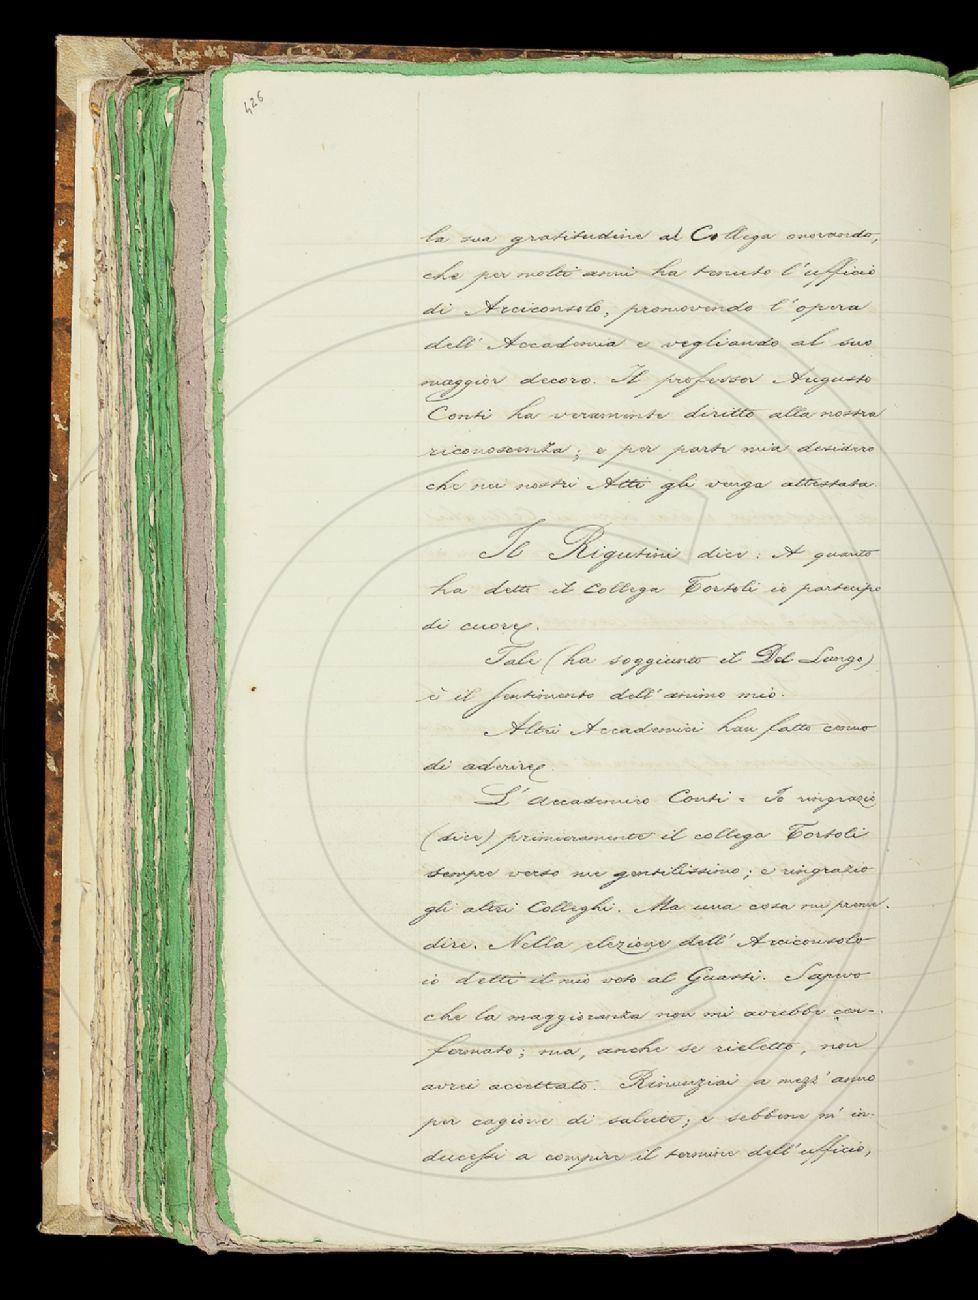 426
la sua gratitudine al Collega onorando,
che per molti anni ha tenuto l'ufficio
di Arciconsolo, promovendo l'opera
dell'Accademia e vegliando al suo
maggior decoro. Il professor Augusto
Conti ha veramente diritto alla nostra
riconoscenza; e per parte mia desidero
che nei nostri Atti gli venga attestata.
Il Rigutini dice: A quanto
ha detto il Collega Tortoli io partecipo
di cuore.
Tale (ha soggiunto il Del Lungo)
è il sentimento dell'animo mio.
Altri Accademici han fatto cenno
di aderire
L'Accademico Conti = Io ringrazio
(dice) primieramente il collega Tortoli
sempre verso me gentilissimo; e ringrazio
gli altri Colleghi. Ma una cosa mi preme
dire. Nella elezione dell'Arciconsolo
io detti il mio voto al Guasti. Sapevo
che la maggioranza non mi avrebbe con-
fermato; ma, anche se rieletto, non
avrei accettato. Rinunziai a mezz'anno
per cagione di salute; e sebbene m'in-
ducessi a compire il termine dell'ufficio,